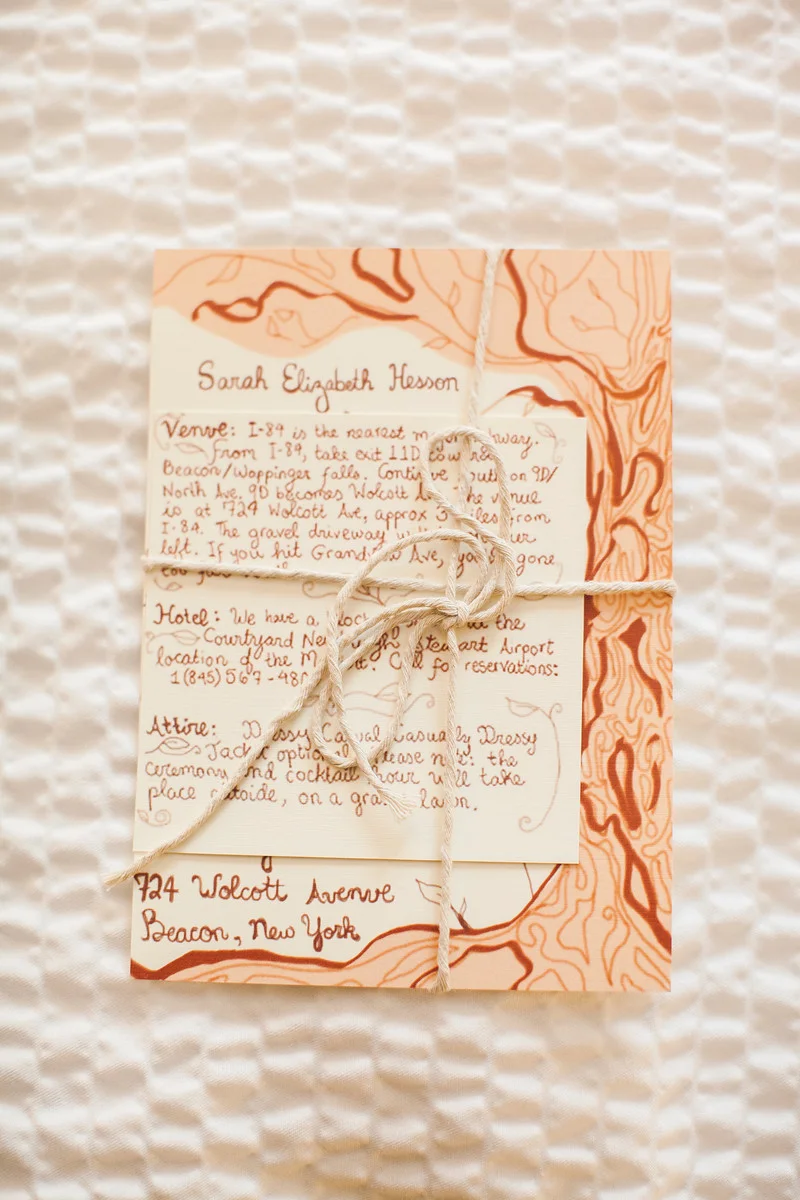 Sarah Elizabeth Hesson
Venue: I-84 is the nearest
From I-89, take exit 11D
Beacon/Wappinger falls. Continue on 9D/
North Ave. 9D becomes Wolcott Ave. The venue
is at 724 Wolcott Ave, approx 3 miles from
I-84. The gravel driveway
left. If you hit Ave, gone
Hotel: We have a the
Courtyard Stewart Airport
location of the Call for reservations:
1(845)567-
Attire: Dressy Casual Casually Dressy
Jacket optional. Please the
ceremony and cocktail hour will take
place outside, on a lawn.
724 Wolcott Avenue
Beacon, New York